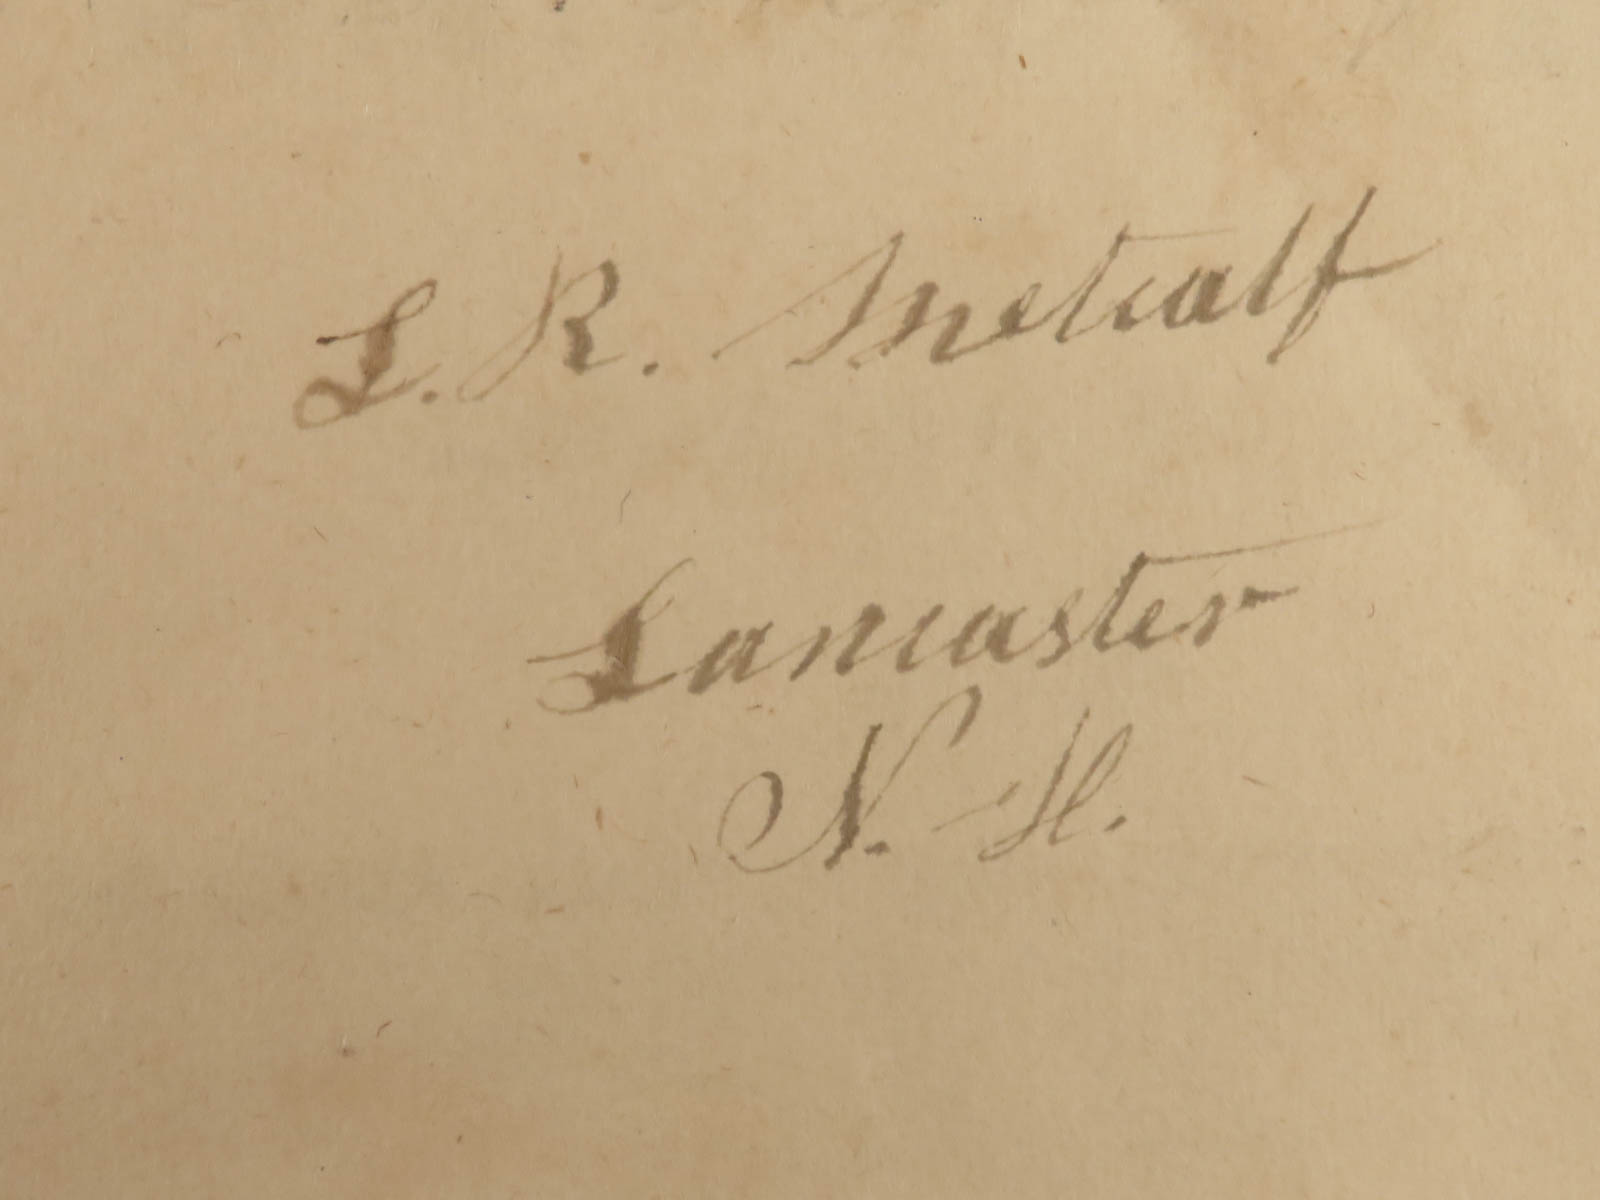 L. R. Metcalf
Lancaster
N. H.